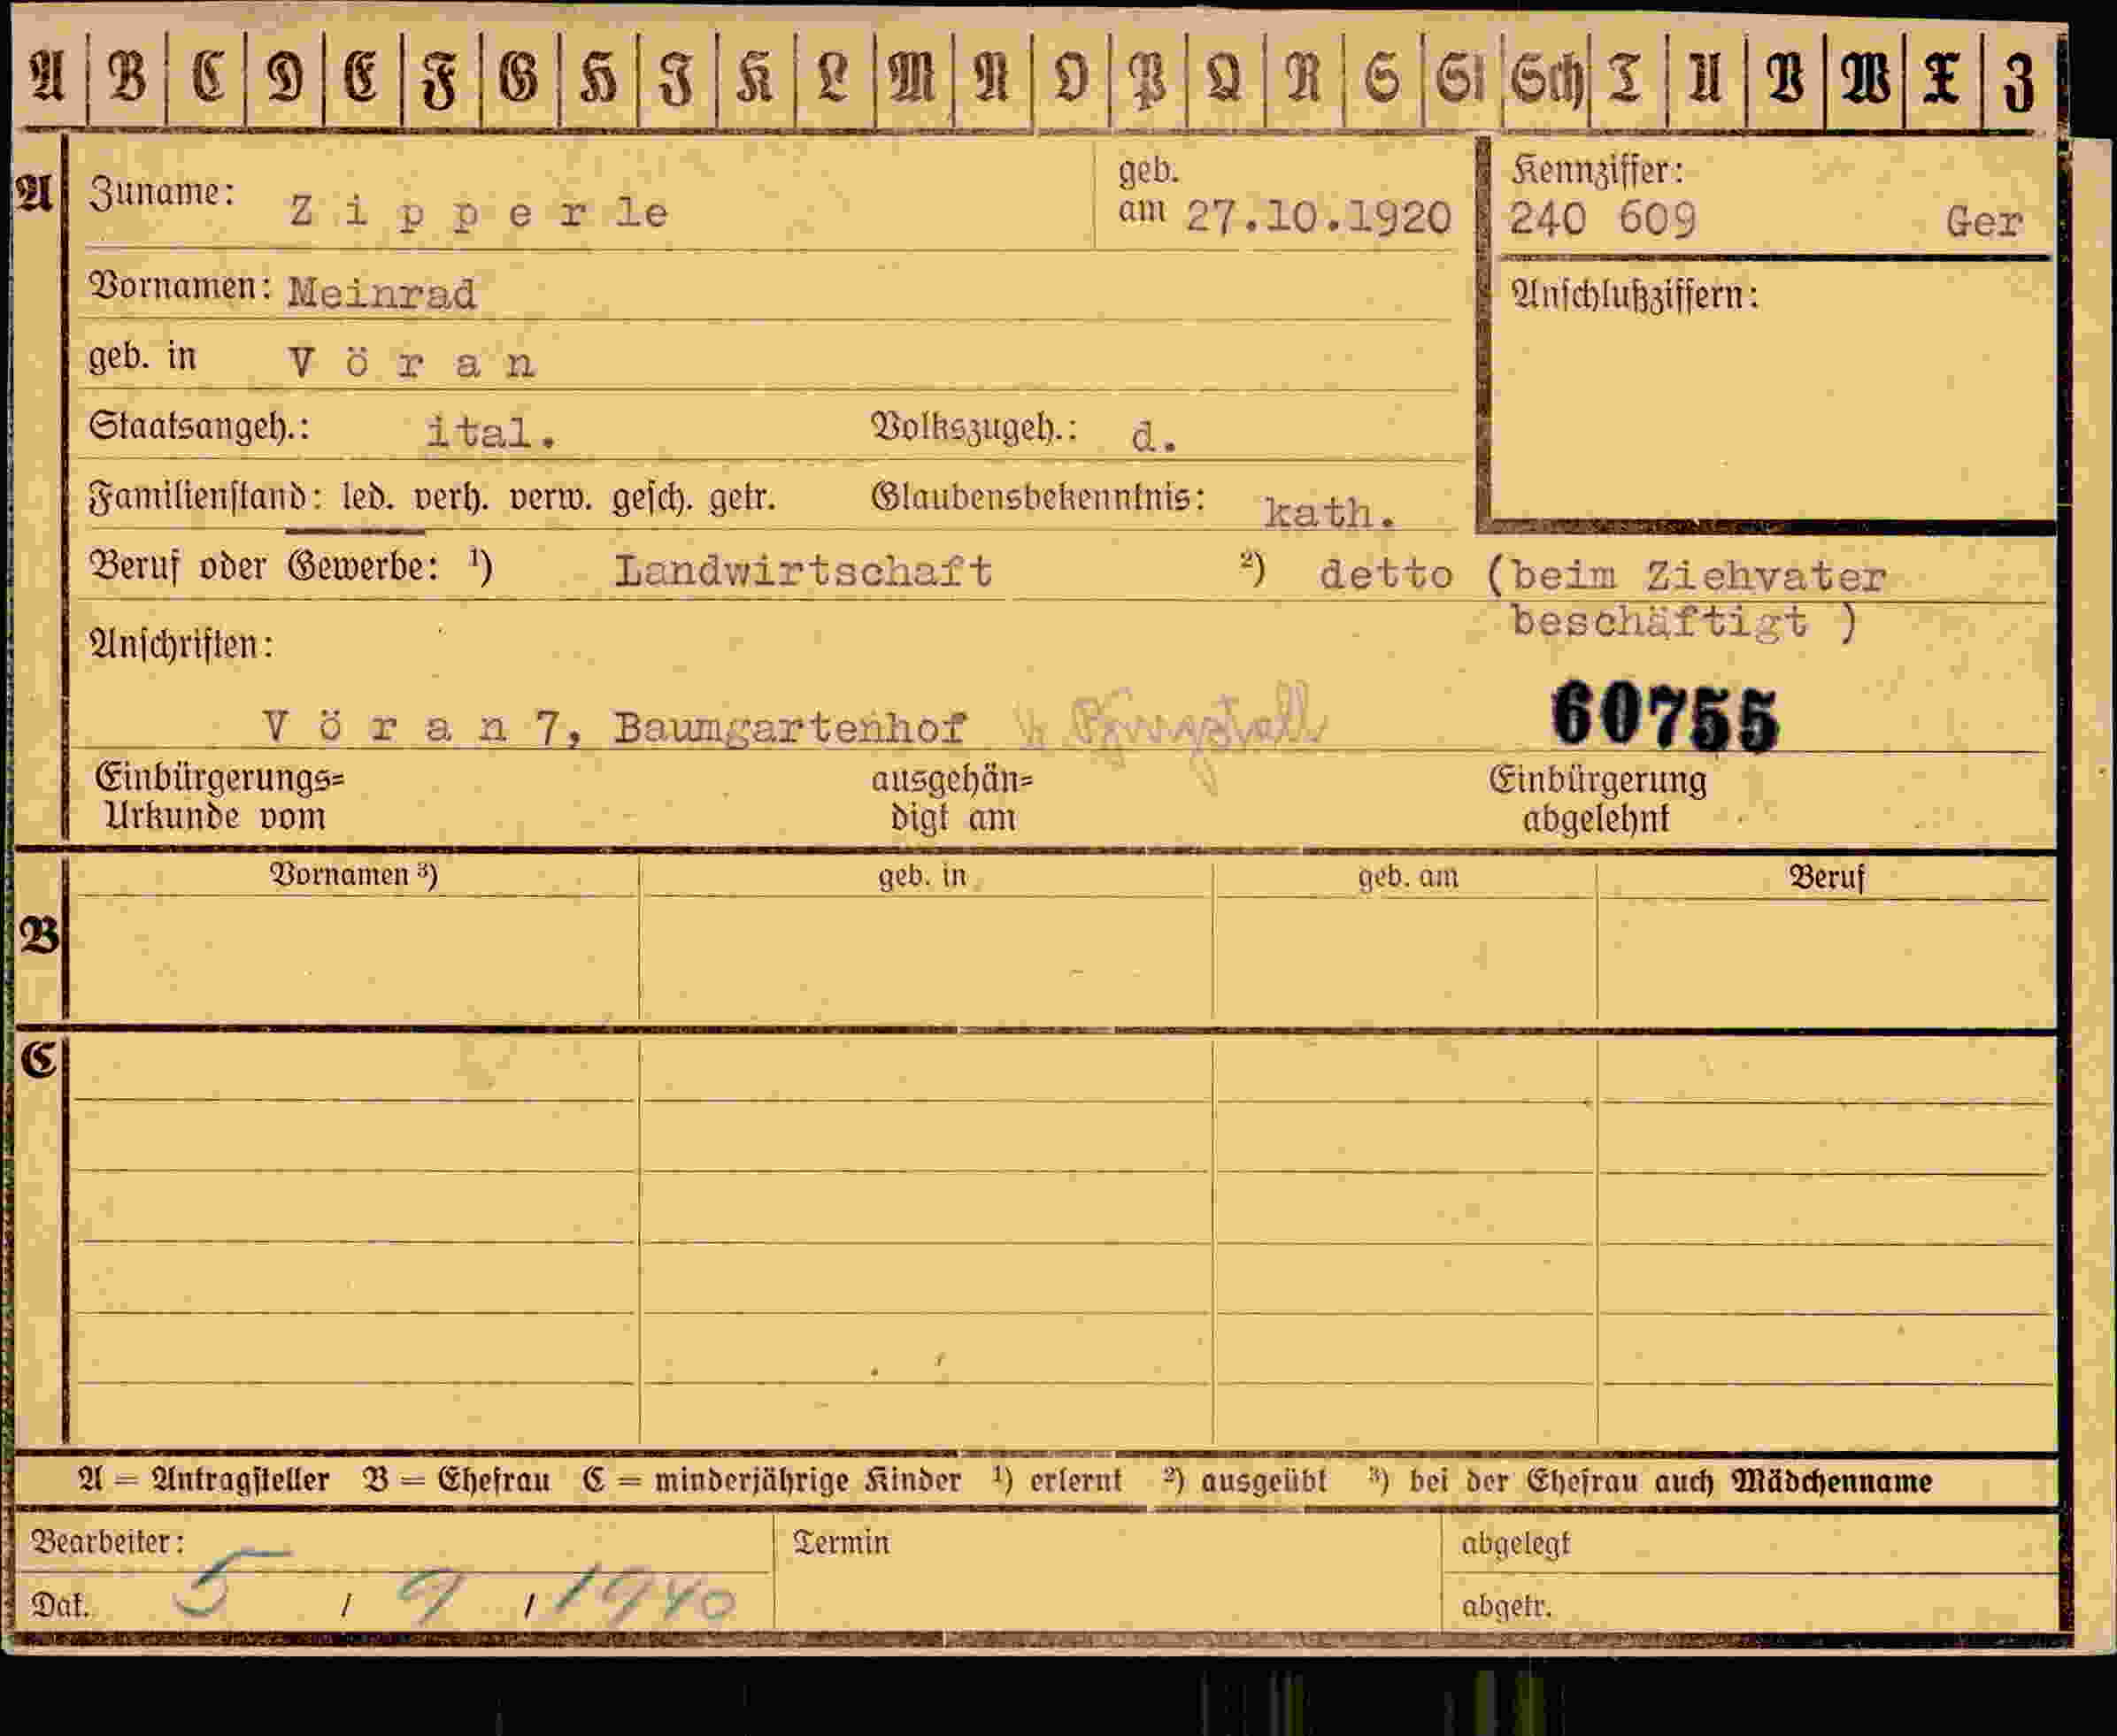 A B C D E F G H I K L M N O P Q R S St Sch T U V W X Z
A Zuname: Zipperle geb. am 27.10.1920 Kennziffer: 240 609 Ger
Vornamen: Meinrad Anschlußziffern:
geb. in Vöran
Staatsangeh.: ital. Volkszugeh.: d.
Familienstand: led. verh. verw. gesch. getr. Glaubensbekenntnis: kath.
Beruf oder Gewerbe: ¹) Landwirtschaft ²) detto (beim Ziehvater
beschäftigt )
Anschriften:
Vöran 7, Baumgartenhof 60755
Einbürgerungs= ausgehän= Einbürgerung
Urkunde vom digt am abgelehnt
Vornamen ³) geb. in geb. am Beruf
B
C
A = Antragsteller B = Ehefrau C = minderjährige Kinder ¹) erlernt ²) ausgeübt ³) bei der Ehefrau auch Mädchenname
Bearbeiter: Termin abgelegt
Dat. 5 / 9 / 1940 abgetr.